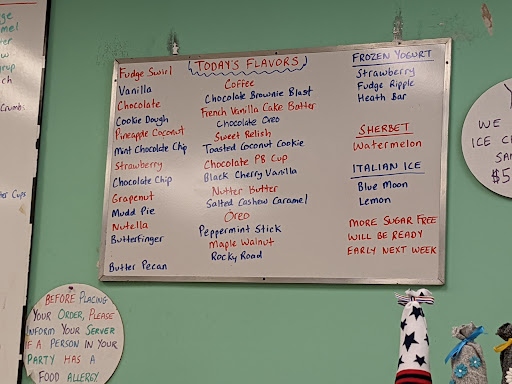 TODAY'S FLAVORS
Fudge Swirl
Vanilla
Chocolate
Cookie Dough
Pineapple Coconut
Mint Chocolate Chip
Strawberry
Chocolate Chip
Grapenut
Mudd Pie
Nutella
Butterfinger
Butter Pecan
Coffee
Chocolate Brownie Blast
French Vanilla Cake Batter
Chocolate Oreo
Sweet Relish
Toasted Coconut Cookie
Chocolate PB Cup
Black Cherry Vanilla
Nutter Butter
Salted Cashew Caramel
Oreo
Peppermint Stick
Maple Walnut
Rocky Road
FROZEN YOGURT
Strawberry
Fudge Ripple
Heath Bar
SHERBET
Watermelon
ITALIAN ICE
Blue Moon
Lemon
MORE SUGAR FREE
WILL BE READY
EARLY NEXT WEEK
BEFORE PLACING
YOUR ORDER, PLEASE
INFORM YOUR SERVER
IF A PERSON IN YOUR
PARTY HAS A
FOOD ALLERGY.
WE
ICE
$5
Crumbs
Cups